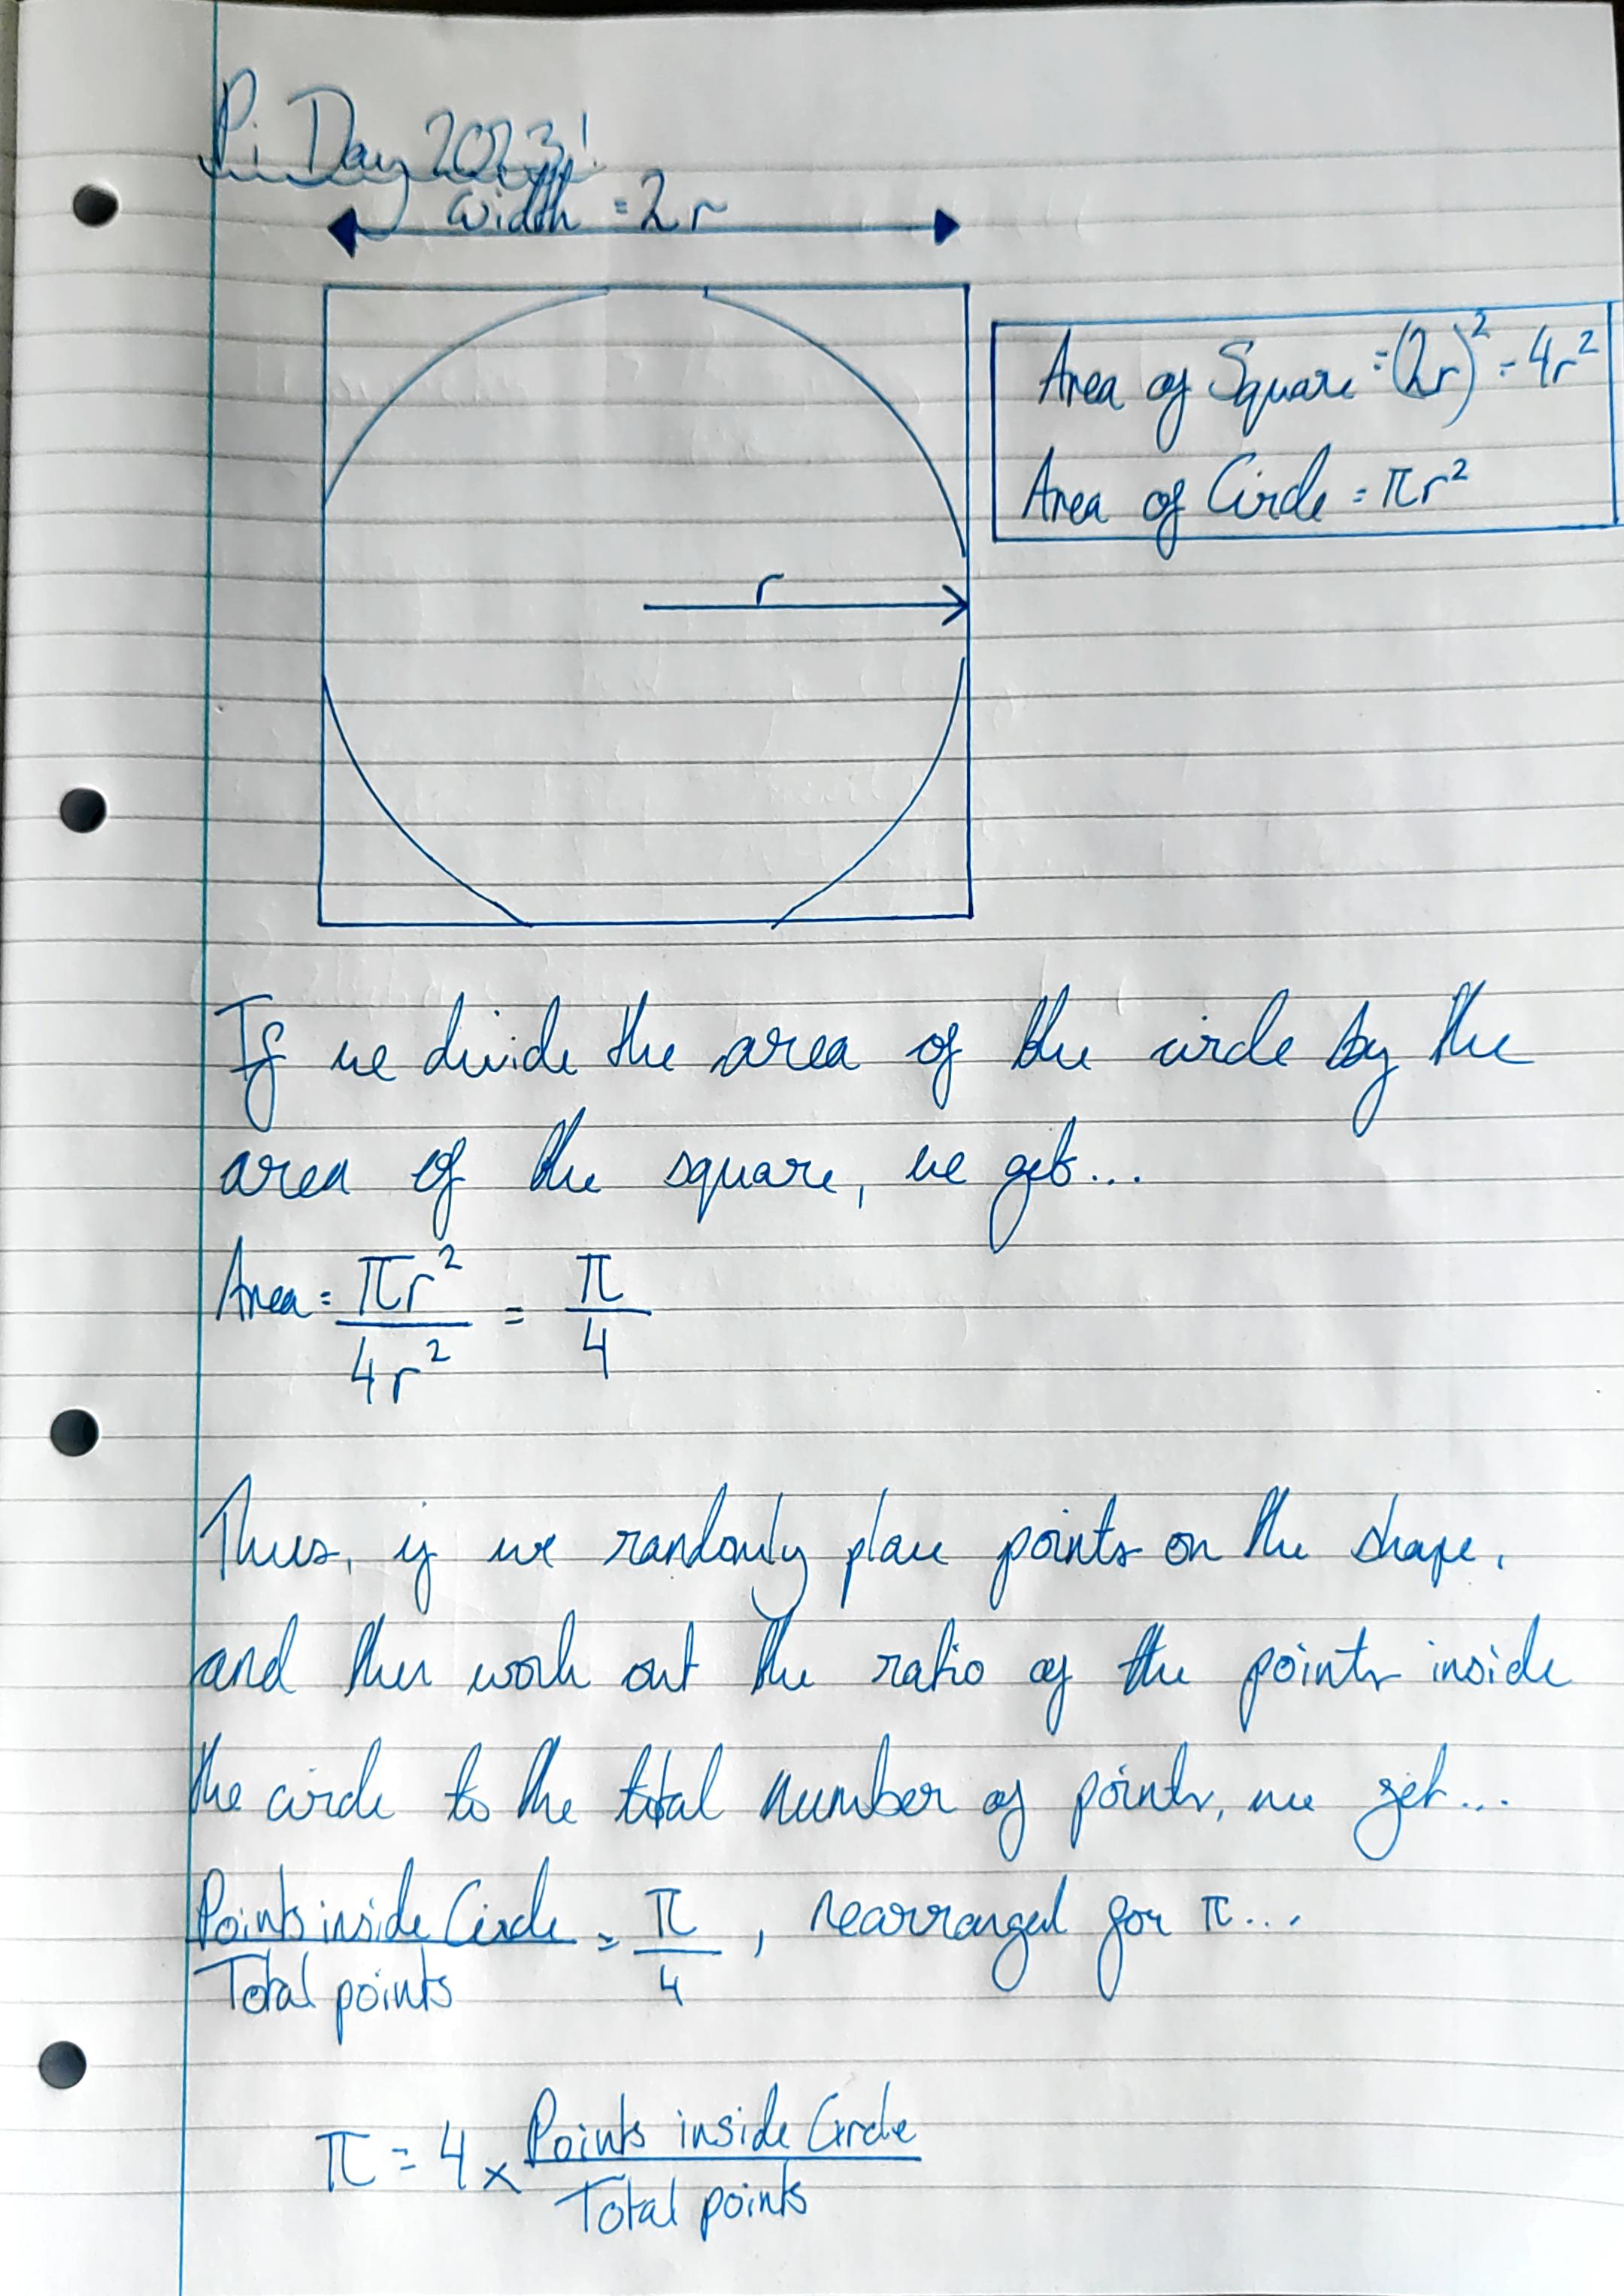 Pi Day 2023!
width = 2r
Area of Square = (2r)² = 4r²
Area of Circle = πr²
r
If we divide the area of the circle by the
area of the square, we get...
Area = πr²/4r² = π/4
Thus, if we randomly place points on the shape,
and then work out the ratio of the points inside
the circle to the total number of points, we get...
Points inside Circle/Total points = π/4, rearranged for π...
π = 4 × Points inside Circle/Total points